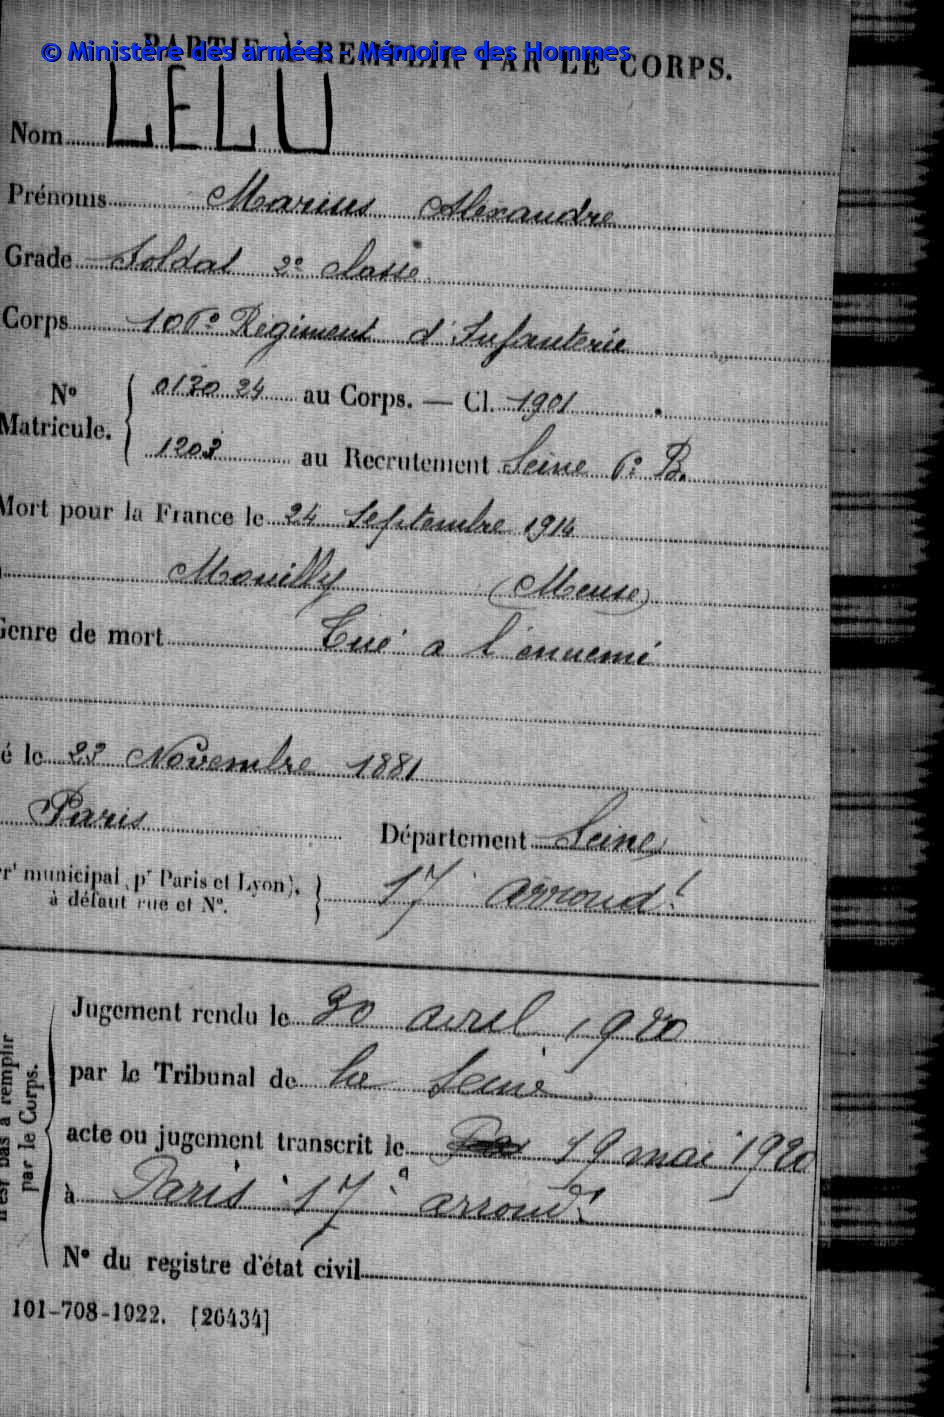 PARTIE À REMPLIR PAR LE CORPS.
© Ministère des armées - Mémoire des Hommes
Nom LELU
Prénoms Marius Alexandre
Grade Soldat 2e classe
Corps 106e Régiment d'Infanterie
No Matricule. { 013024 au Corps. — Cl. 1901
1203 au Recrutement Seine 6e B.
Mort pour la France le 24 Septembre 1914
Mouilly (Meuse)
Genre de mort Tué a l'ennemi
é le 23 Novembre 1881
Paris Département Seine
rt municipal pr Paris et Lyon), à défaut rue et No. } 17 arrondt
Jugement rendu le 30 avril 1920
par le Tribunal de la Seine
acte ou jugement transcrit le 19 mai 1920
à Paris 17e arrondt
No du registre d'état civil
n'est pas à remplir par le Corps.
101-708-1922. [26434]